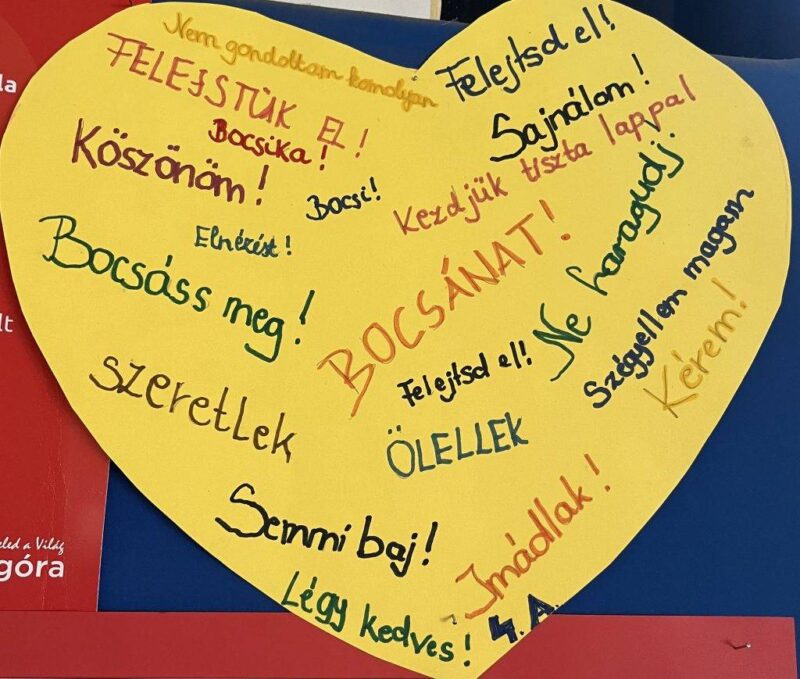 Nem gondoltam komolyan
Felejtsd el!
FELEJSTÜK EL!
Sajnálom!
Bocsika!
Köszönöm!
Kezdjük tiszta lappal
Bocsi!
Ne haragudj.
Elnézést!
BOCSÁNAT!
Szégyellem magam
Bocsáss meg!
Kérem!
Felejtsd el!
szeretlek
ÖLELLEK
Semmi baj!
Imádlak!
Légy kedves!
4.A.
la
lt
eled a Világ
góra